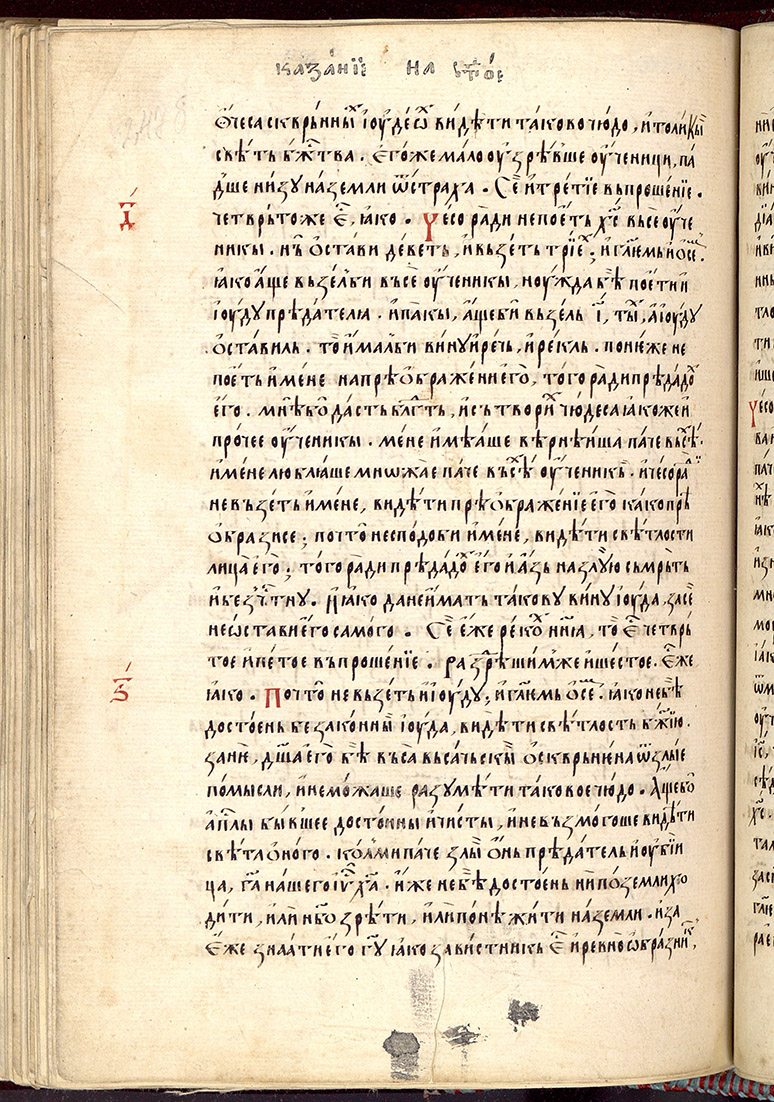 казанїе на ст҃ое
ѻ҆́чеса скврьнны́х і҆ꙋде́ѡ҆м ви́дѣти таково чю́до, и҆ толи́кы
свѣ́ть бж҃тва. є҆го́же мало оу҆зрѣ́вше оу҆ченици, па́
дше ни́зꙋ на земли ѿ стра́ха. се́ и҆ тре́тїе въпроше́нїе.
д҃
четврь́тоже є҆с, ꙗ҆ко. Че́со ра́ди не пое́ть хс҃ въсе оу҆́че
никы. нь ѻ҆ста́ви де́веть, и҆ вьзе́ть трїе́х; и҆ гл҃емь и҆ ѻ҆ се́м.
ꙗ҆ко а҆́ще вьзе́льби въсе́ оу҆ченикы, ноу́жда бѣ̀ пое́ти и
і҆оу́дꙋ прѣда́телꙗ. и҆ па́кы, а҆́щеби вьзе́ль і҃і, ты́х, а҆ і҆оу́дꙋ
ѻ҆ста́виль. то и҆ма́льби винꙋ и҆ ре́чь, и҆ ре́кль. поне́же не
пое́ть и҆ мене на прѣѻ҆браже́нїе е҆го̀, то́го ра́ди прѣда́дох
є҆го. мнѣ́бо да́сть блг҃ть, и҆ сътвори́х чю́деса ꙗ҆коже и
про́чее оу҆ченикы. мене и҆мѣ́аше вѣрнѣ́иша па́че въсѣ́х.
и҆ мене люблꙗ́ше мнѡжа́е па́че въсѣ́х оу҆ченикь. и҆ чесора́ди
не възе́ть и҆ мене, видѣ́ти прѣѻ҆браже́нїе є҆го ка́ко прѣ
ѻ҆бразисе; почто̀ не сподоби и҆ мене, ви́дѣти свѣ́тлости
лица̀ є҆го̀; то́го ра́ди прѣда́дох є҆го и҆ а҆́зь на злꙋ́ю съмрь́ть
и҆ без чь́стнꙋ. И҆ ꙗ҆ко да не и҆́мать такову винꙋ̀ і҆оу́да, за се́
не ѡ҆ста́ви е҆го само́го. Се́ є҆́же реко́х нн҃ꙗ, то є҆с четврь
тое и҆ пе́тое въпроше́нїе. разрѣши́мже и҆ ше́стое. є҆́же
ѕ҃
ꙗ҆ко. Почто̀ не вьзе́ть и҆ і҆оу́дꙋ; и҆ гл҃емь ѻ҆ се́м. ꙗ҆ко небѣ̀
досто́ень беза́конны і҆оу́да, ви́дѣти свѣ́тлость бж҃їю.
зане́, дш҃а є҆го̀ бѣ̀ въса вьса́чьскы ѻ҆скврьне́на ѿ злы́е
помысли, и҆ не мо́жаше разꙋмѣ́ти таково́е чю́до. А҆́щебо
а҆пⷭ҇лы бы́вшее досто́йны и҆ чи́сты, и҆ не възмо́гоше ви́дѣти
свѣ́т ѻ҆́ного. ко́лми па́че злы ѻ҆́нь прѣда́тель и҆ оу҆бїи
ца, га҃ на́шего і҆у҃ ха҃. и҆́же не бѣ̀ досто́ень ни по земли́ хо
ди́ти, и҆ли́ нб҃о зрѣ́ти, и҆ли́ понѣ̀ жи́ти на земли. и҆ за
є҆́же зна́ати е҆го гꙋ҃ ꙗ҆ко за́вистникь є҆с и҆ ре́вно ѡ҆бразни́к,